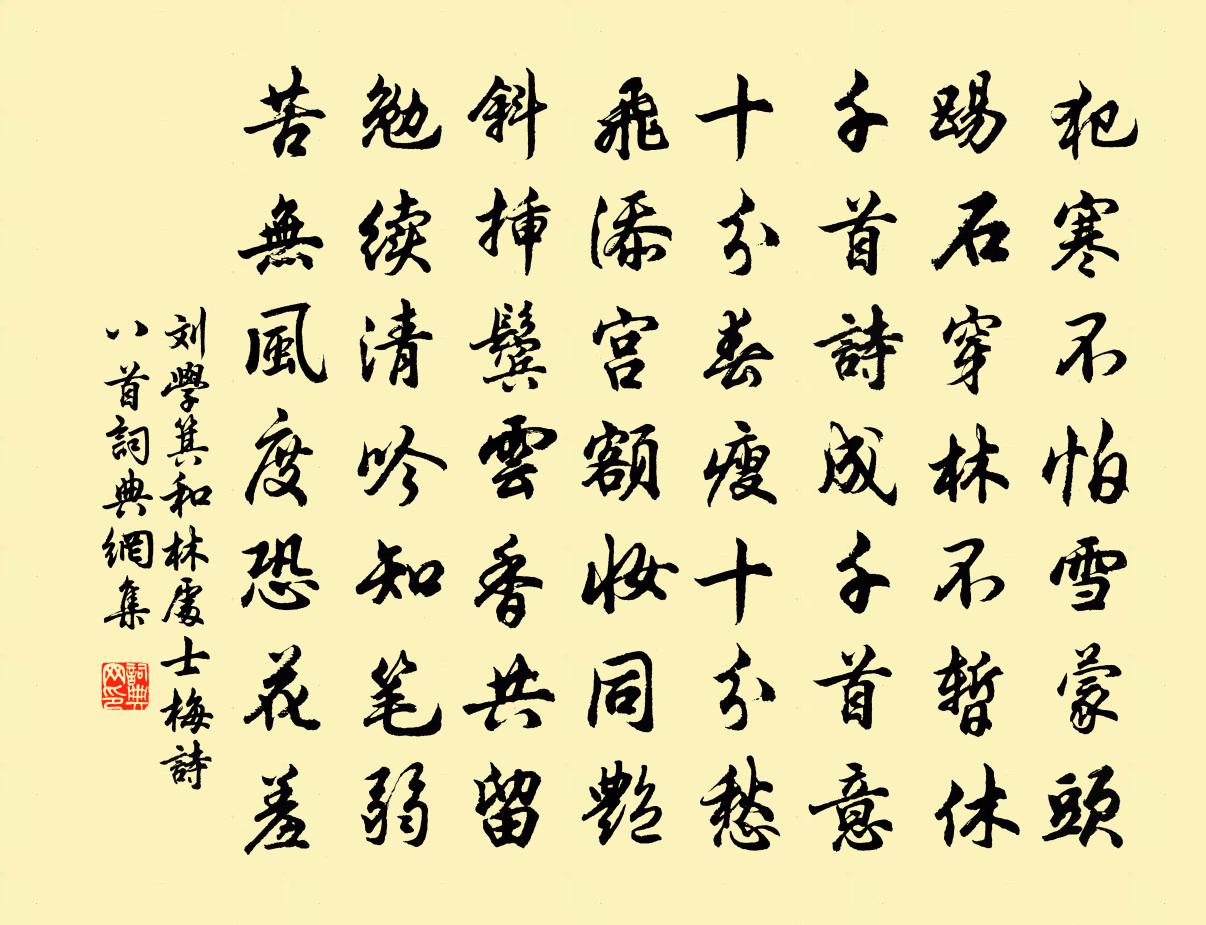 犯寒不怕雪蒙頭
踢石穿林不暫休
千首詩成千首意
十分春瘦十分愁
飛添宫額妝同艷
斜挿鬓雲香共留
勉续清吟知笔弱
苦無風度恐花羞
刘學箕和林處士梅詩
八首詞典網集
詞典
网印